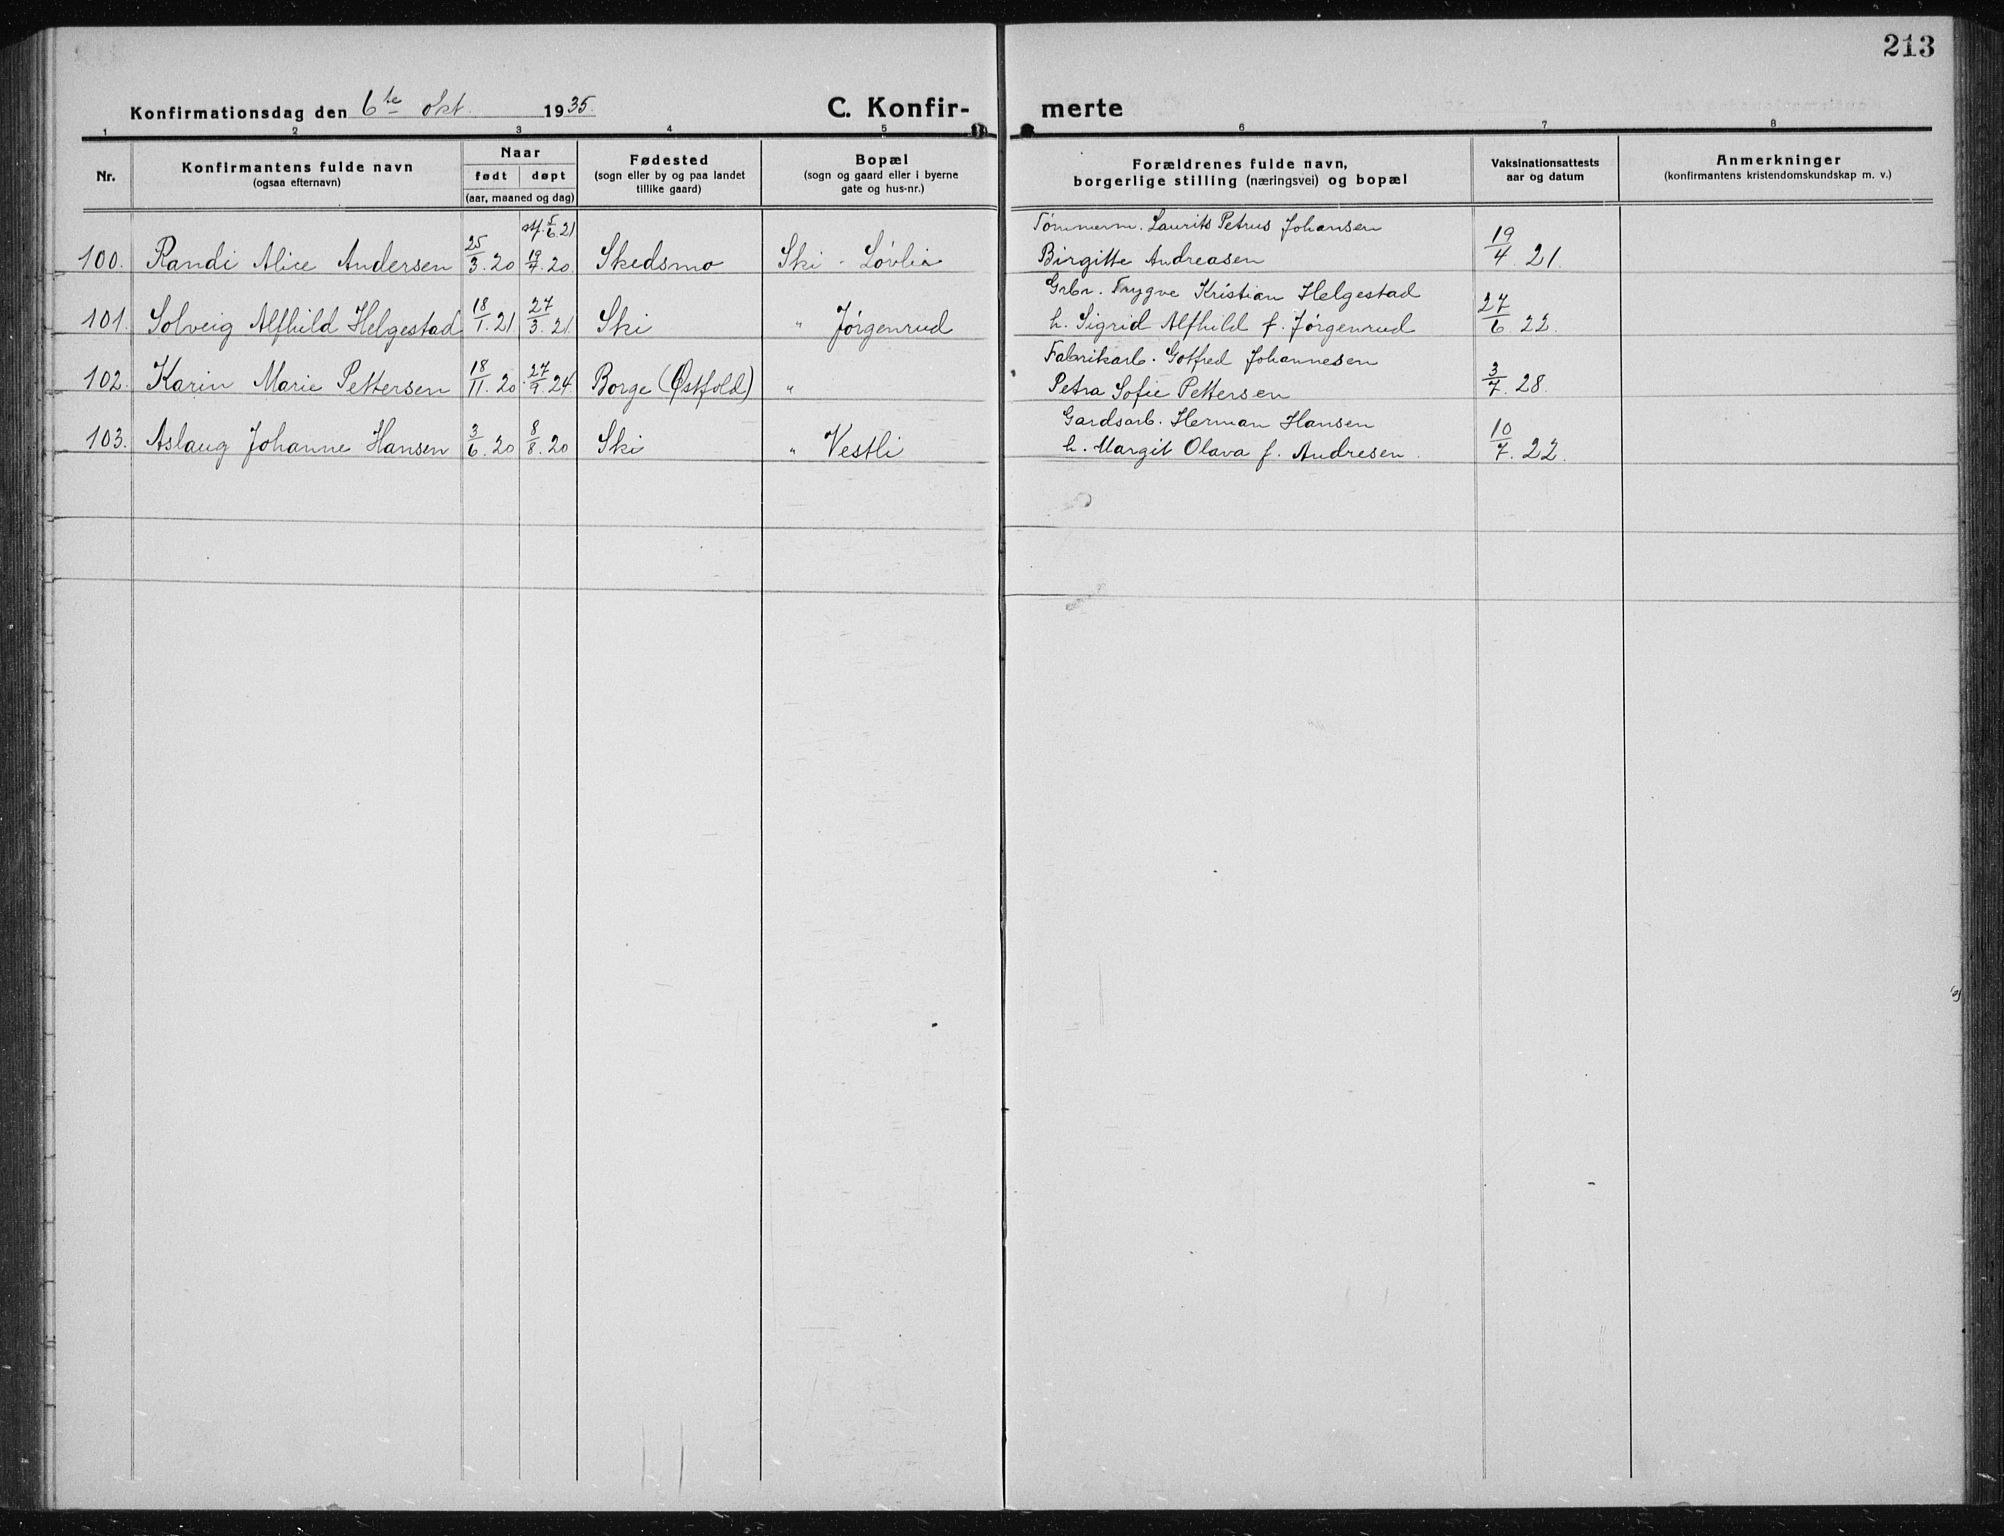 213
Konfirmationsdag den 6te okt. 1935.
C. Konfir-
merte
1 2 3 4 5 6 7 8
Nr.
Konfirmantens fulde navn
(ogsaa efternavn)
Naar
født døpt
(aar, maaned og dag)
Fødested
(sogn eller by og paa landet
tillike gaard)
Bopæl
(sogn og gaard eller i byerne
gate og hus-nr.)
Forældrenes fulde navn,
borgerlige stilling (næringsvei) og bopæl
Vaksinationsattests
aar og datum
Anmerkninger
(konfirmantens kristendomskundskap m. v.)
5/6.21
Tømmerm. Laurits Petrus Johansen
100. Randi Alice Andersen 25/3.20 19/7.20 Skedsmo Ski - Løvlia Birgitte Andreasen 19/4.21.
Grbr. Trygve Kristian Helgestad
101. Solveig Alfhild Helgestad 18/1.21 27/3.21 Ski " Jørgenrud h. Sigrid Alfhild f. Jørgenrud 27/6.22.
Fabrikarb. Gotfred Johannesen
102. Karin Marie Pettersen 18/11.20. 27/9.24 Borge (Østfold) " Petra Sofie Pettersen 3/7.28.
Gardsarb. Herman Hansen
103. Aslaug Johanne Hansen 3/6.20 8/8.20 Ski " Vestli h. Margit Olava f. Andresen. 10/7.22.